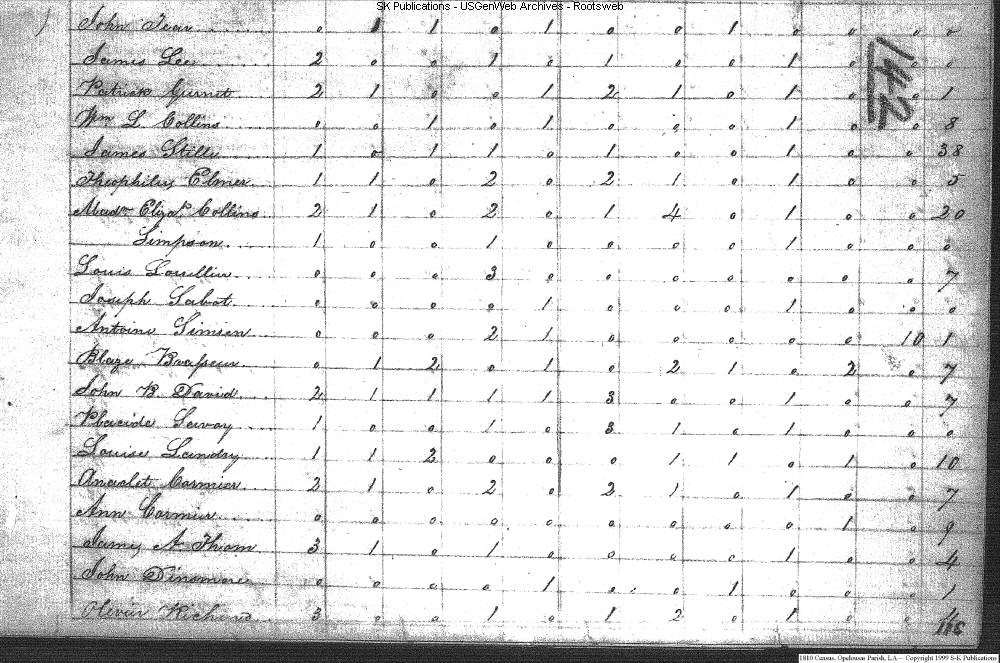 SK Publications - USGenWeb Archives - Rootsweb
John Tear 0 1 1 0 1 0 0 1 0 0 0
142
James Lee 2 0 0 1 0 1 0 0 1 0 0
Patrick Gurnet 2 1 0 0 1 2 1 0 1 0 1
Wm L. Collins 0 0 1 0 1 0 0 0 1 0 8
James Stille 1 0 1 1 0 1 0 0 1 0 0 38
Theophilus Elmer 1 1 0 2 0 2 1 0 1 0 0 5
Madm Elizah Collins 2 1 0 2 0 1 4 0 1 0 0 20
Simpson 1 0 0 1 0 0 0 0 1 0 0 0
Louis 0 0 0 3 0 0 0 0 0 0 0 7
Joseph Labot 0 0 0 0 1 0 0 0 1 0 0 0
Antoine Simien 0 0 0 2 1 0 0 0 0 0 10 1
Blaze Braseur 0 1 2 0 1 0 2 1 0 2 0 7
John B. David 2 1 1 1 1 3 0 0 1 0 0 7
Placide Savoy 1 0 0 1 0 3 1 0 1 0 0 0
Louise Landry 1 1 2 0 0 0 1 1 0 1 0 10
Anaclet Cormier 2 1 0 2 0 2 1 0 1 0 0 7
Ann Cormier 0 0 0 0 0 0 0 0 0 1 0 9
James A Thom 3 1 0 1 0 0 0 0 1 0 0 4
John Dinsmore 0 0 0 0 1 0 0 1 0 0 0 1
Olivier Richard 3 0 0 1 0 1 2 0 1 0 0
1810 Census, Opelousas Parish, LA -- Copyright 1999 S-K Publications